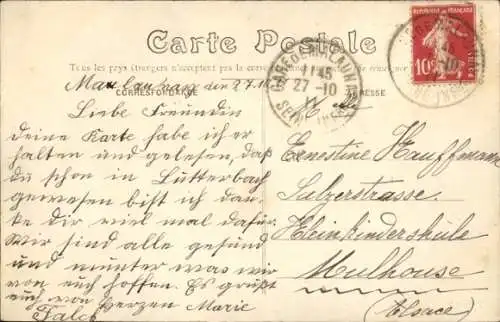 Carte Postale
Tous les pays étrangers n'acceptent pas la
CORRESPONDANCE
RÉPUBLIQUE FRANÇAISE
10
11 45
27 -10
Liebe Freundin
Deine Karte habe ich er
halten und gelesen, daß
du schon in Lutterbach
gewesen bist ich dan-
ke dir viel mal dafür.
Wir sind alle gesund
und munter was wir
von euch hoffen. Es grüßt
euch von herzen Marie
Falck
Mlle
Ernestine Kauffmann
Sulzerstrasse.
Kleinkinderschule
Mulhouse
(Alsace)